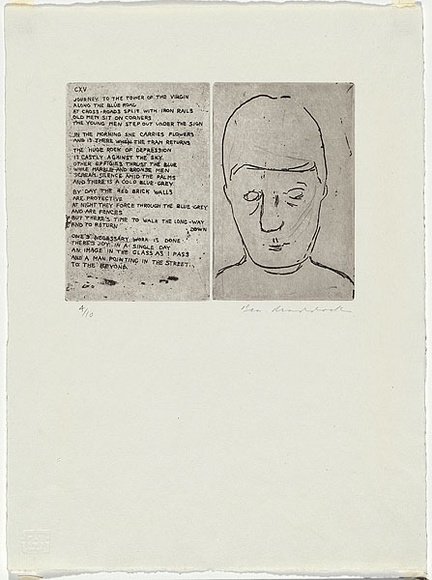 CXV
JOURNEY TO THE POWER OF THE VIRGIN
ALONG THE BLUE ROAD
AT CROSS-ROADS SPLIT WITH IRON RAILS
OLD MEN SIT ON CORNERS
THE YOUNG MEN STEP OUT UNDER THE SIGN
IN THE MORNING SHE CARRIES FLOWERS
AND IS THERE WHEN THE TRAM RETURNS
THE HUGE ROCK OF DEPRESSION
IS CASTLY AGAINST THE SKY.
OTHER EFFIGIES THRUST THE BLUE
WHILE MARBLE AND BRONZE MEN
SCREAM SILENCE AMID THE PALMS
AND THERE IS A COLD BLUE-GREY
BY DAY THE RED BRICK WALLS
ARE PROTECTIVE
AT NIGHT THEY FORCE THROUGH THE BLUE GREY
AND ARE FENCES
BUT THERE'S TIME TO WALK THE LONG-WAY
DOWN
AND TO RETURN
ONE'S NECESSARY WORK IS DONE
THERE'S JOY IN A SINGLE DAY
AN IMAGE IN THE GLASS AS I PASS
AND A MAN POINTING IN THE STREET
TO THE BEYOND.
4/10